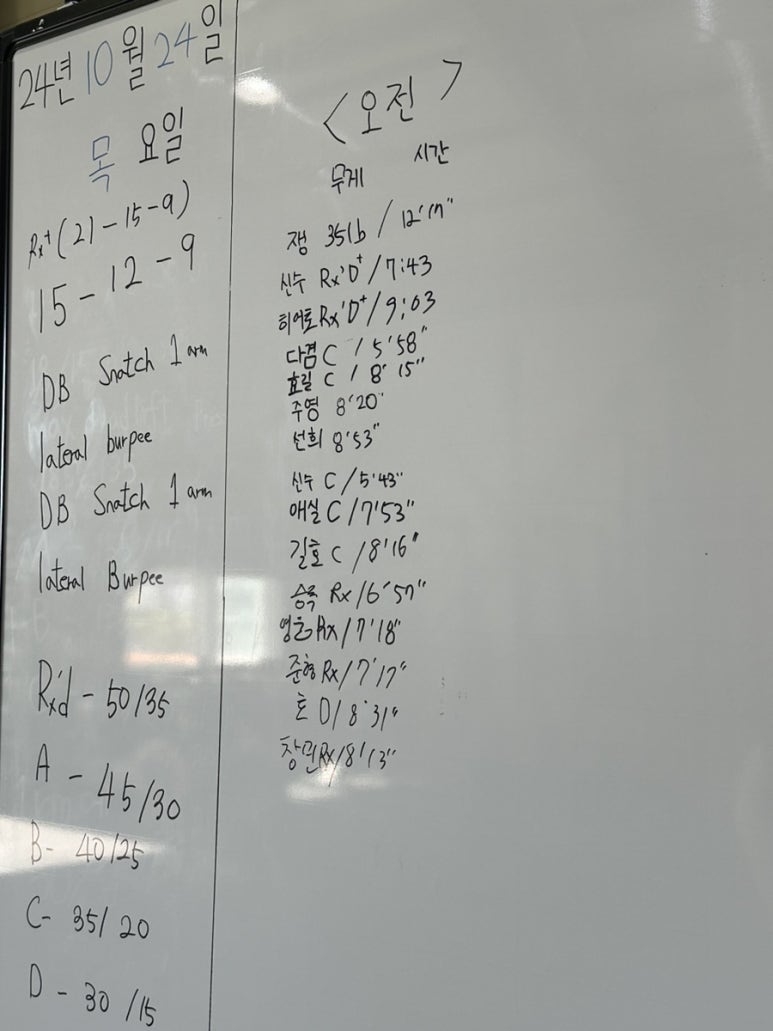 24년 10월 24일
목요일
Rx+ (21-15-9)
15-12-9
DB Snatch 1 arm
lateral burpee
DB Snatch 1 arm
lateral Burpee
Rx'd - 50/35
A - 45/30
B- 40/25
C- 35/20
D - 30/15
<오전>
무게 시간
쟁 35lb / 12'17"
신수 Rx'D+/7:43
히어로 Rx'D+/9:03
다겸 C / 5'58"
효길 C / 8'15"
주영 8'20"
선희 8'53"
신수 C/5'43"
애실 C/7'53"
길호 C /8'16"
승욱 Rx/6'57"
Rx/7'18"
준형 Rx/7'17"
D/8'31"
창민 Rx/8'13"